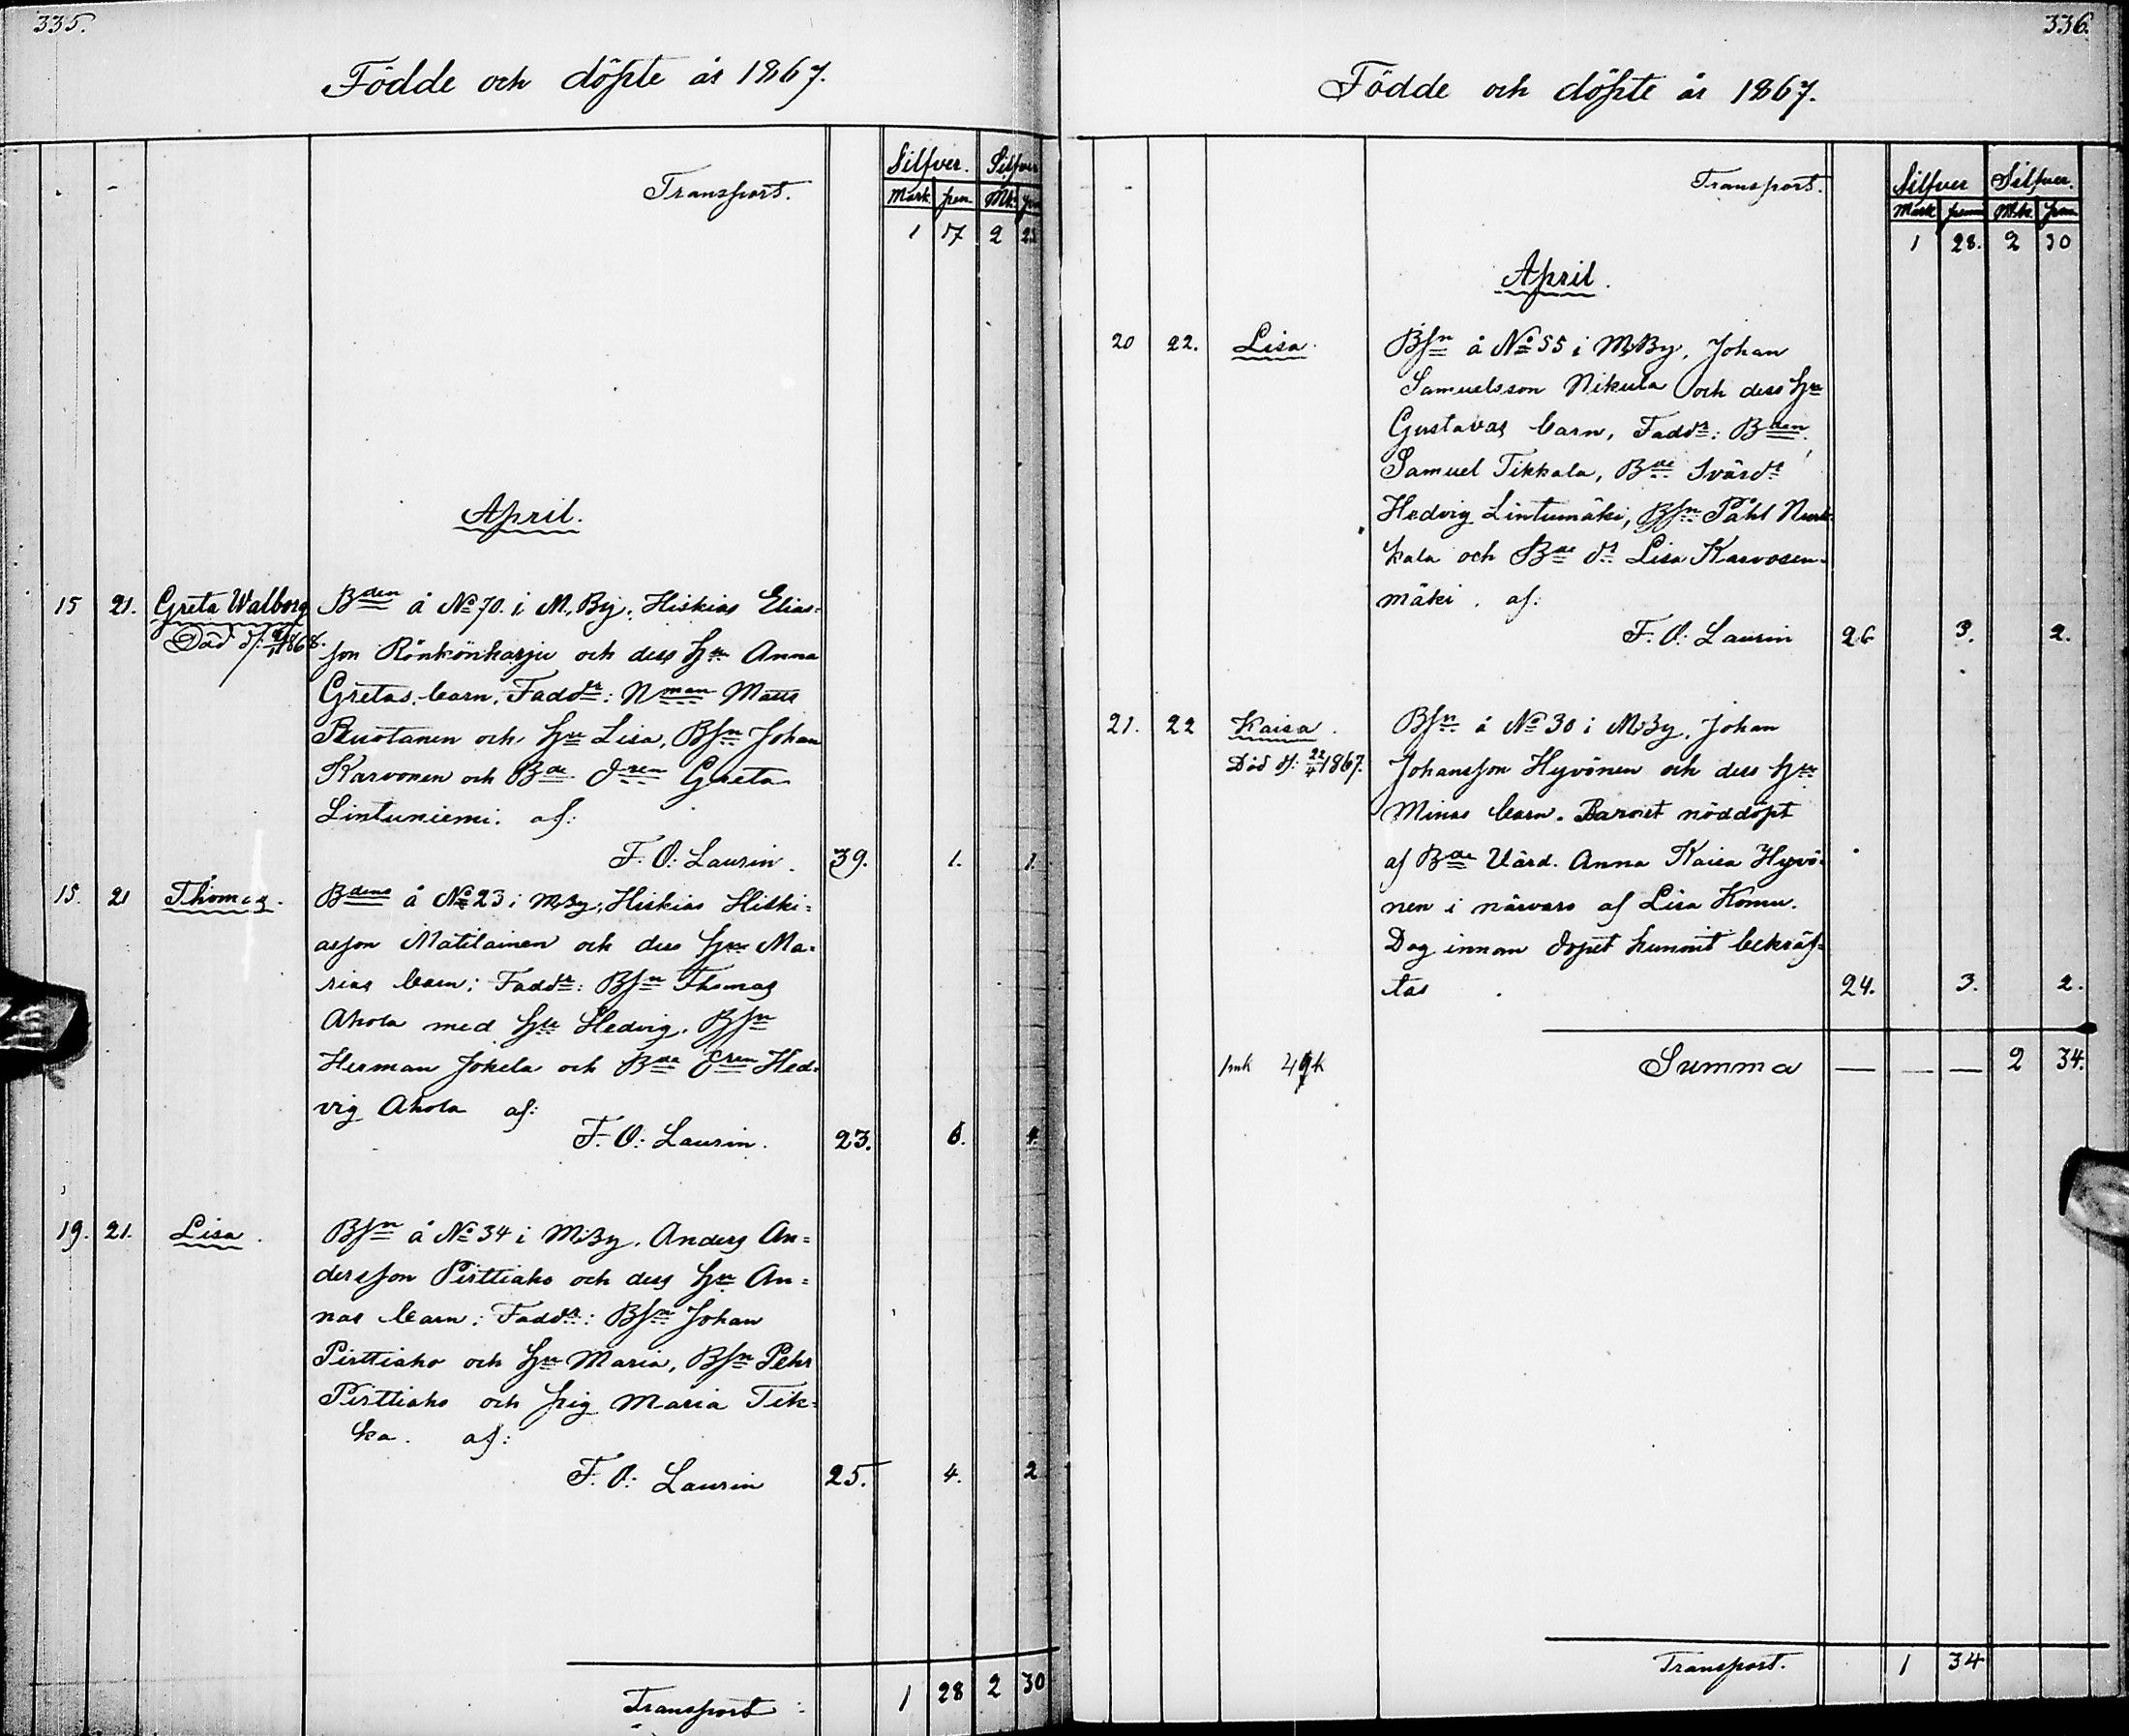 335.
Födde och döpte år 1867.
Transport.
Silfver. Silfver
Mark pen. Mk. pen
1 17 2 25
April.
15 21. Greta Walborg Bden å No 70. i M. By. Hiskias Elias=
Död d: 1868. son Rönkönharju och dess Hu Anna
Gretas barn, Faddr: Nman Matts
Ruotanen och Hu Lisa, Bsn Johan
Karvonen och Bde dren Greta
Lintuniemi. af:
F. O: Laurin. 39. 1. 1.
15. 21 Thomas. Bdens å No 23 i M. By, Hiskias Hiski=
asson Matilainen och dess Hu Ma=
rias barn: Faddr: Bsn Thomas
Ahola med Hu Hedvig. Bsn
Herman Jokela och Bde dren Hed=
vig Ahola af:
F. O: Laurin. 23. 6.
19. 21. Lisa. Bsn å No 34 i M. By. Anders An=
dersson Pirttiaho och dess Hu An=
nas barn: Faddr: Bsn Johan
Pirttiaho och Hu Maria, Bsn Pehr
Pirttiaho och pig Maria Tik=
ka. af:
F. O: Laurin 25. 4. 2
Transport: 1 28 2 30
336.
Födde och döpte år 1867.
Transport.
Silfver Silfver.
Mark penn Mk. pen
1 28. 2 30
April.
20 22. Lisa. Bsn å No 55 i M. By, Johan
Samuelsson Nikula och dess Hu
Gustavas barn, Faddr: Bden
Samuel Tikkala, Bde Svärdr
Hedvig Lintumäki, Bsn Påhl Nurk=
kala och Bde dr Lisa Karvosen=
mäki. af:
F. O: Laurin 26 3. 2.
21. 22 Kaisa. Bsn å No 30 i M. By, Johan
Död d: 22/4 1867. Johansson Hyvönen och dess Hu
Minas barn. Barnet nöddöpt
af Bde Värd. Anna Kaisa Hyvö=
nen i närvaro af Lisa Komu.
Dog innan dopet hunnit bekräf=
tas 24. 3. 2.
Summa — — — 2 34.
Transport. 1 34